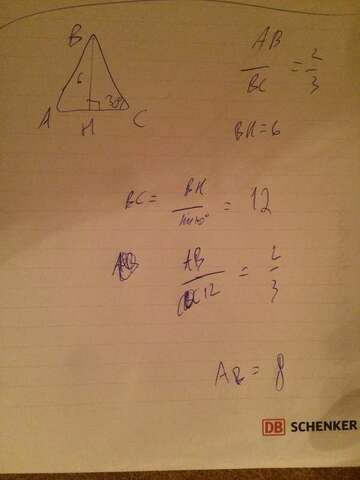 B
6
30°
A
H
C
AB/BC = 2/3
BH = 6
BC = BH/ = 12
AB/12 = 2/3
AB = 8
DB SCHENKER